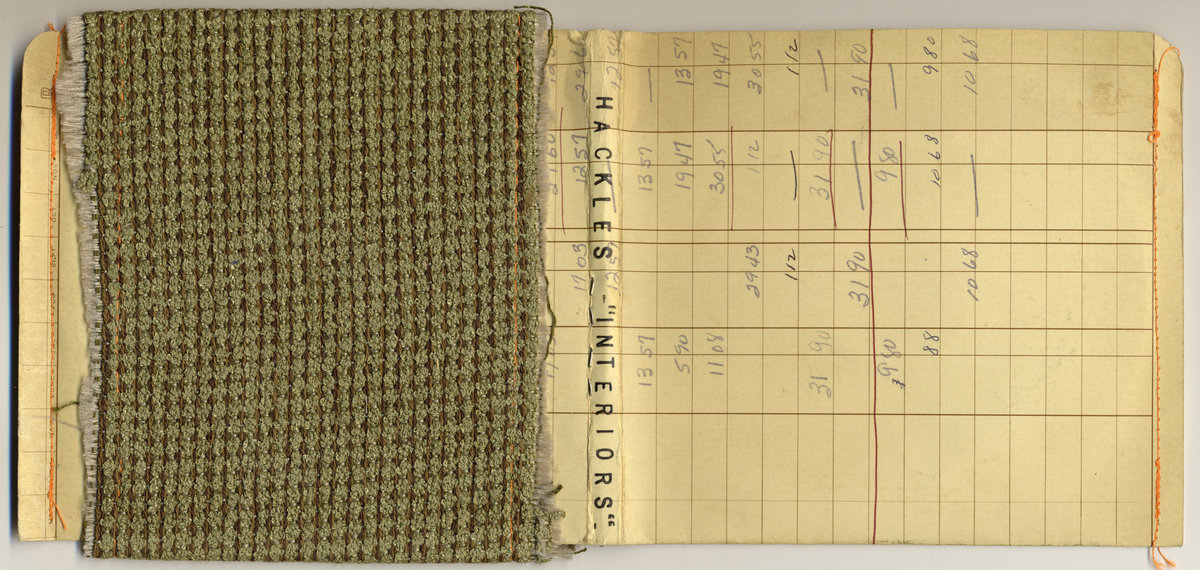 2160
1703 1257
HACKLES - "INTERIORS"
1357 1357 —
590 1947 1357
1108 3055 1947
2943 112 3055
112 — 112
3190 3190 —
3190 — 3190
980 980 —
88 1068 980
1068 — 1068